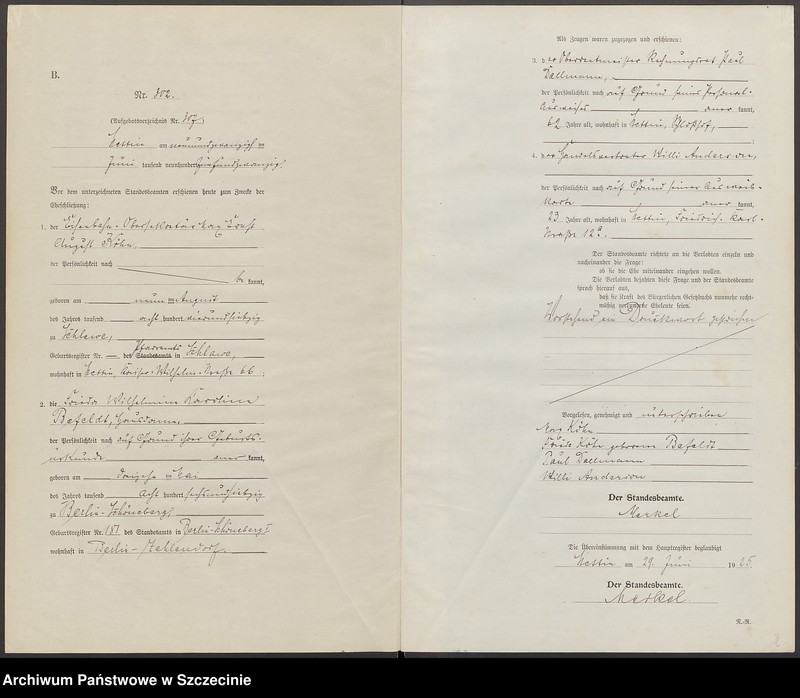 B.
Nr. 802.
(Aufgebotsverzeichnis Nr. 857)
Stettin am neunundzwanzigsten
Juni tausend neunhundert fünfundzwanzig.
Vor dem unterzeichneten Standesbeamten erschienen heute zum Zwecke der
Eheschließung:
1. der Eisenbahn-Obersekretär Max Ernst
August Köhn,
der Persönlichkeit nach
be kannt,
geboren am neunten August
des Jahres tausend acht hundert vierundsiebzig
zu Schlawe,
Geburtsregister Nr. — des Pfarramts Standesamts in Schlawe,
wohnhaft in Stettin, Kaiser-Wilhelm-Straße 66;
2. die Frieda Wilhelmine Karoline
Befeldt, Hausdame,
der Persönlichkeit nach auf Grund ihrer Geburts-
urkunde aner kannt,
geboren am Mai
des Jahres tausend acht hundert sechsundsiebzig
zu Berlin-Schöneberg,
Geburtsregister Nr. 187 des Standesamts in Berlin-Schöneberg I
wohnhaft in Berlin-Zehlendorf.
Als Zeugen waren zugezogen und erschienen:
3. der Oberrentmeister Rechnungsrat Paul
Dallmann,
der Persönlichkeit nach auf Grund seines Personal-
ausweises aner kannt,
62 Jahre alt, wohnhaft in Stettin,
4. der Handelsvertreter Willi Anderson,
der Persönlichkeit nach auf Grund seiner Ausweis-
karte aner kannt,
23 Jahre alt, wohnhaft in Stettin, Friedrich-Karl-
Straße 12a.
Der Standesbeamte richtete an die Verlobten einzeln und
nacheinander die Frage:
ob sie die Ehe miteinander eingehen wollen.
Die Verlobten bejahten diese Frage und der Standesbeamte
sprach hierauf aus,
daß sie kraft des Bürgerlichen Gesetzbuchs nunmehr recht-
mäßig verbundene Eheleute seien.
Vorstehend ein Druckwort gestrichen
Vorgelesen, genehmigt und unterschrieben
Max Köhn
Frieda Köhn geborene Befeldt
Paul Dallmann
Willi Anderson
Der Standesbeamte.
Merkel
Die Übereinstimmung mit dem Hauptregister beglaubigt
Stettin am 29. Juni 1925.
Der Standesbeamte.
Merkel
N.-R.
Archiwum Państwowe w Szczecinie